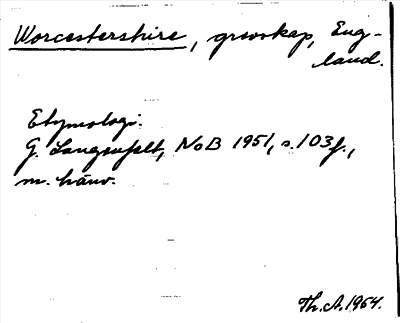 Worcestershire, grevskap, Eng-
land.
Etymologi:
G. Langenfelt, NoB 1951, s. 103 f.,
m. hänv.
Th. A. 1964.